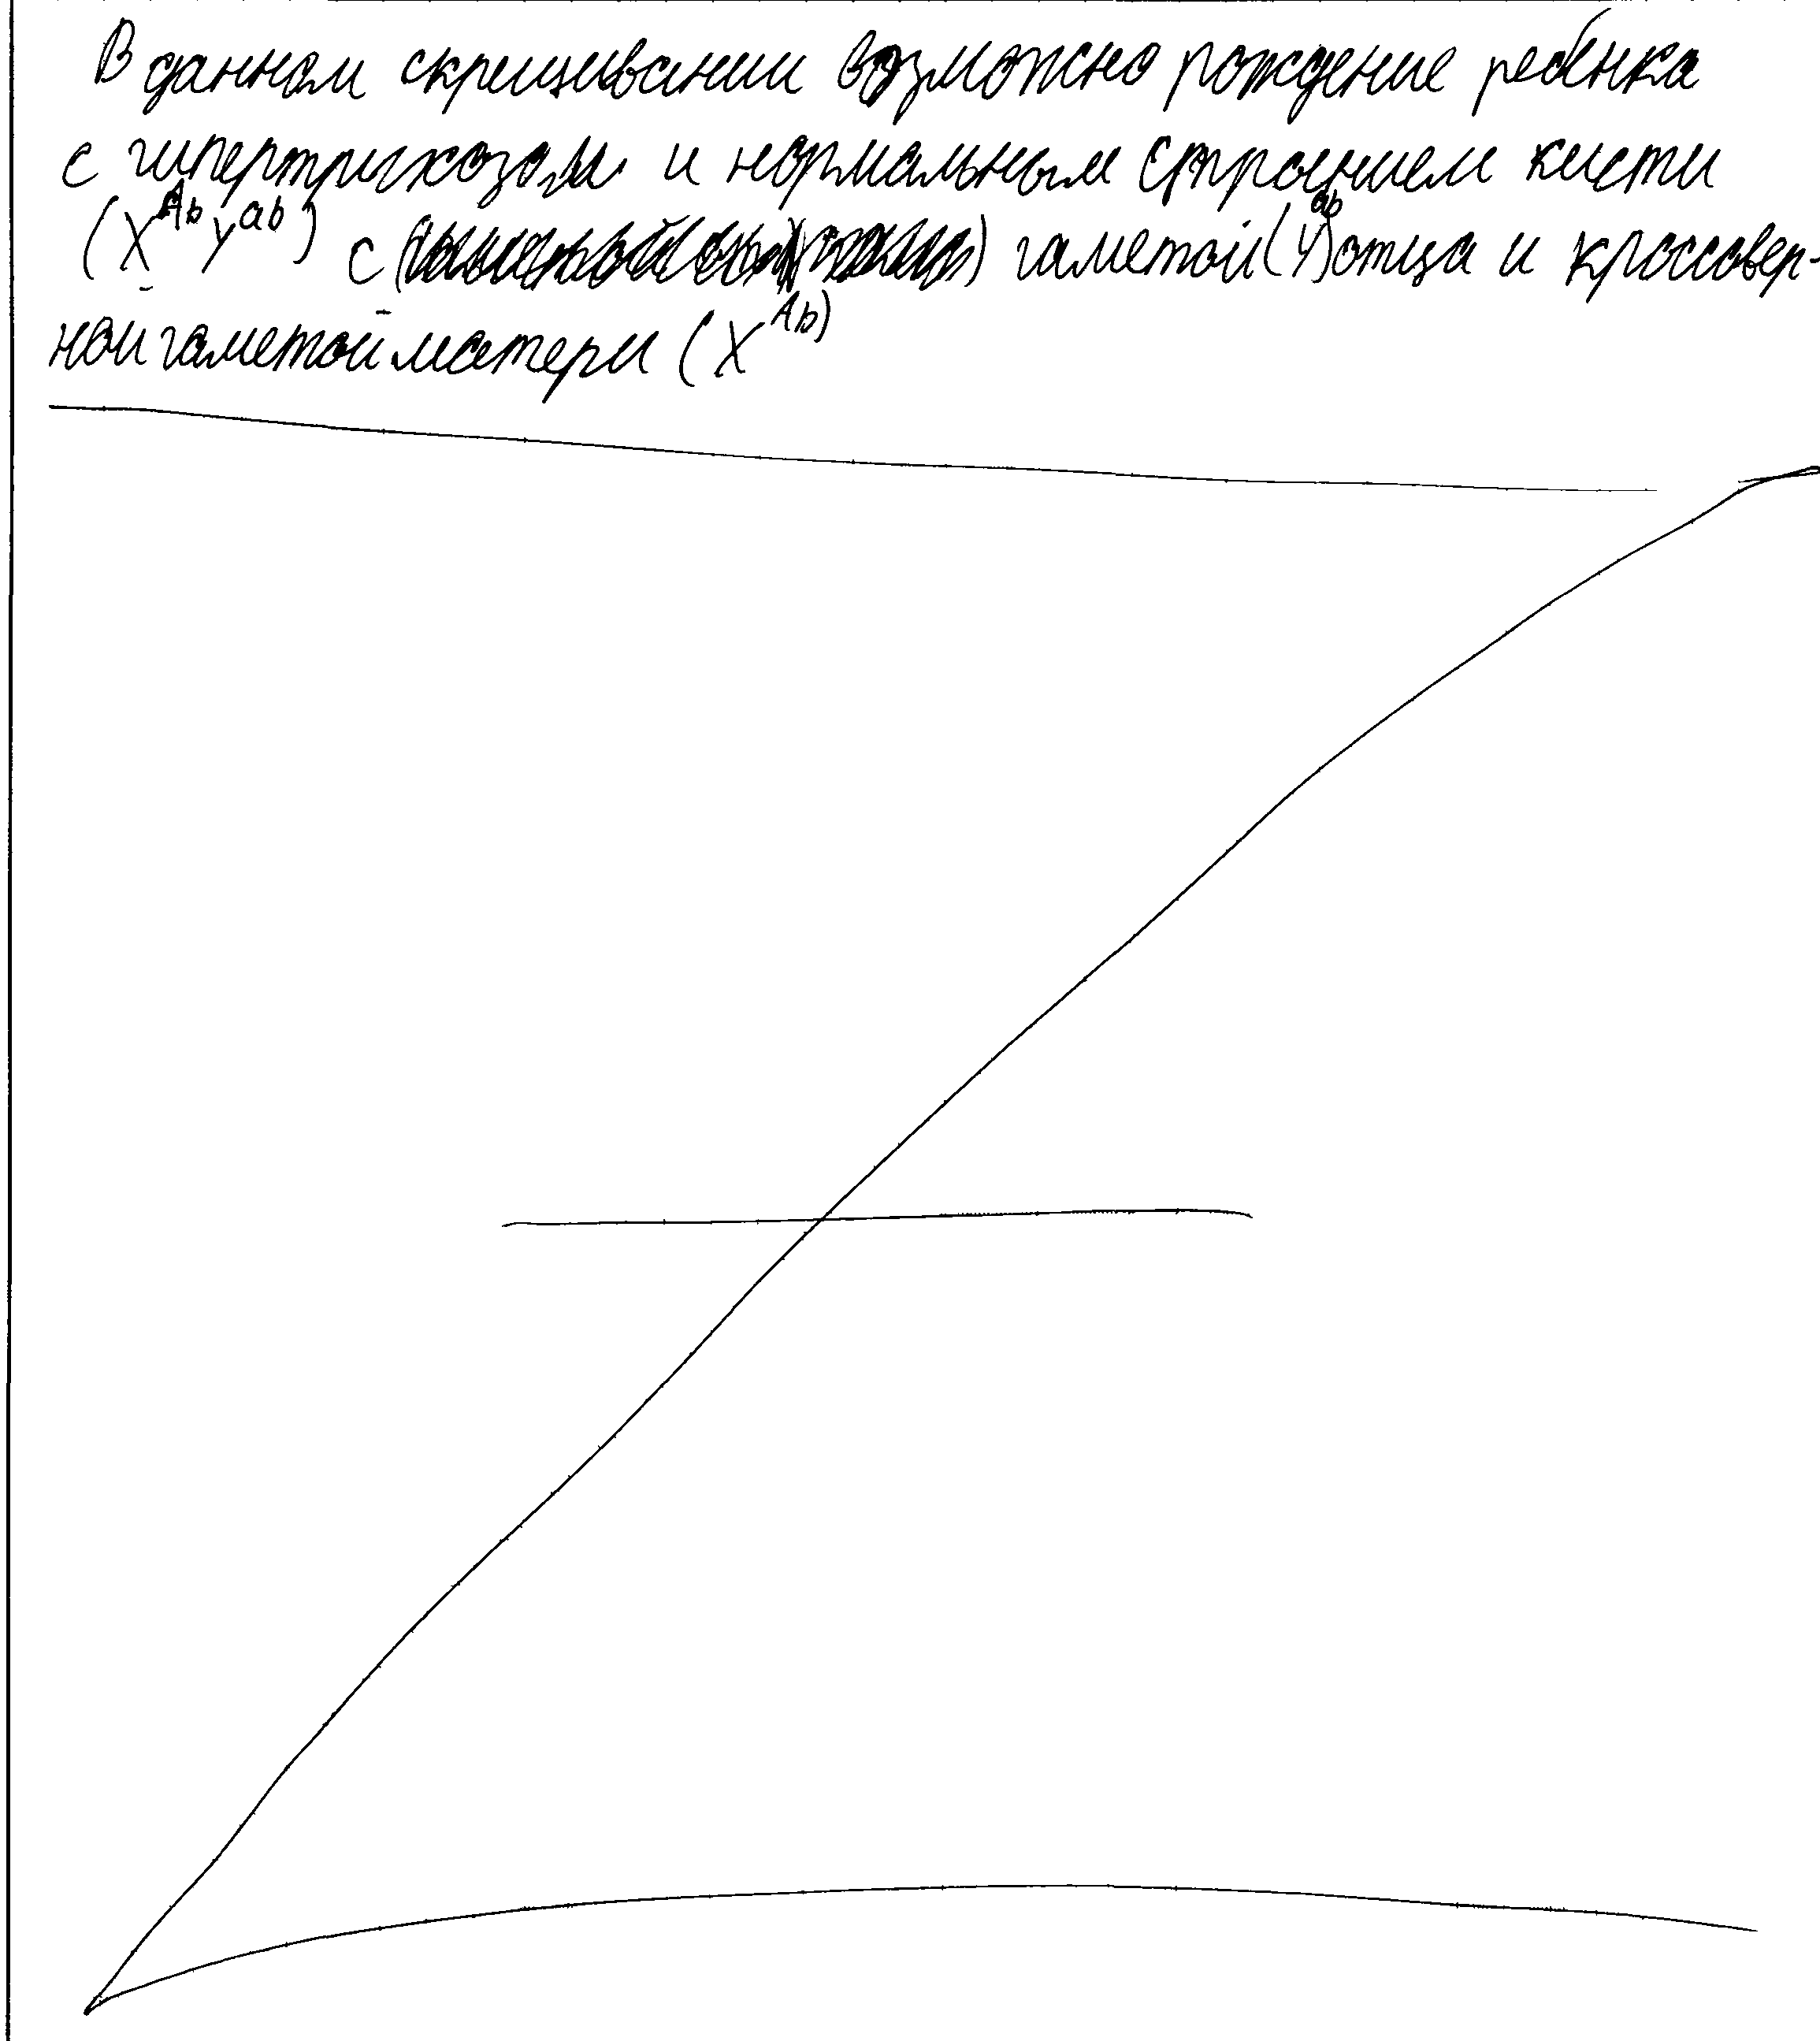 В данном скрещивании возможно рождение ребёнка
с гипертрихозом и нормальным строением кисти
(X^Ab Y^ab) с гаметой (Y^ab) отца и кроссовер-
ной гаметой матери (X^Ab)